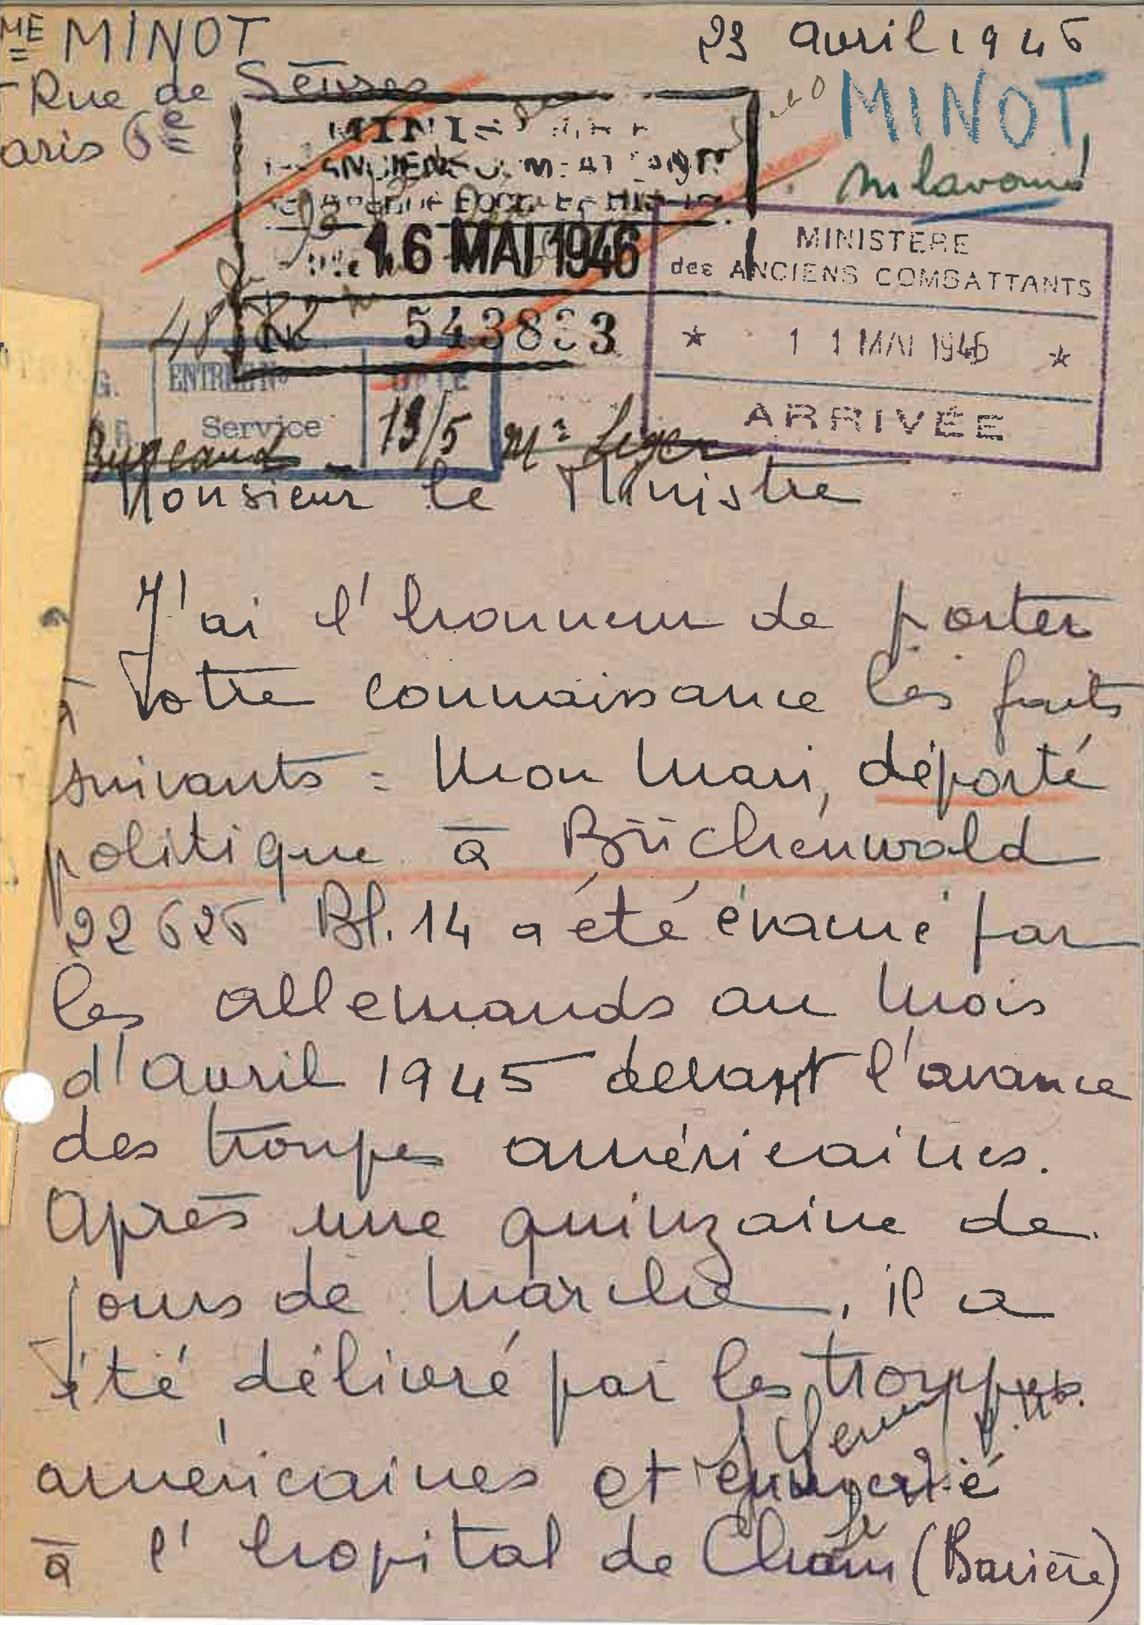 ME MINOT
23 avril 1946
Rue de Sèvres
MINOT
aris 6e
16 MAI 1946
MINISTERE
des ANCIENS COMBATTANTS
N° 543833
* 11 MAI 1946 *
ENTREE N°
DATE
G.
Service
ARRIVÉE
13/5 Mr Leger
Bugeaud
Monsieur le Ministre
J'ai l'honneur de porter
à Votre connaissance les faits
suivants : Mon Mari, déporté
politique à Büchenwald
22626 Bl. 14 a été évacué par
les allemands au Mois
d'Avril 1945 devant l'avance
des troupes américaines.
Après une quinzaine de
jours de Marche, il a
été délivré par les troupes
américaines et
à l'hopital de Cham (Bavière)